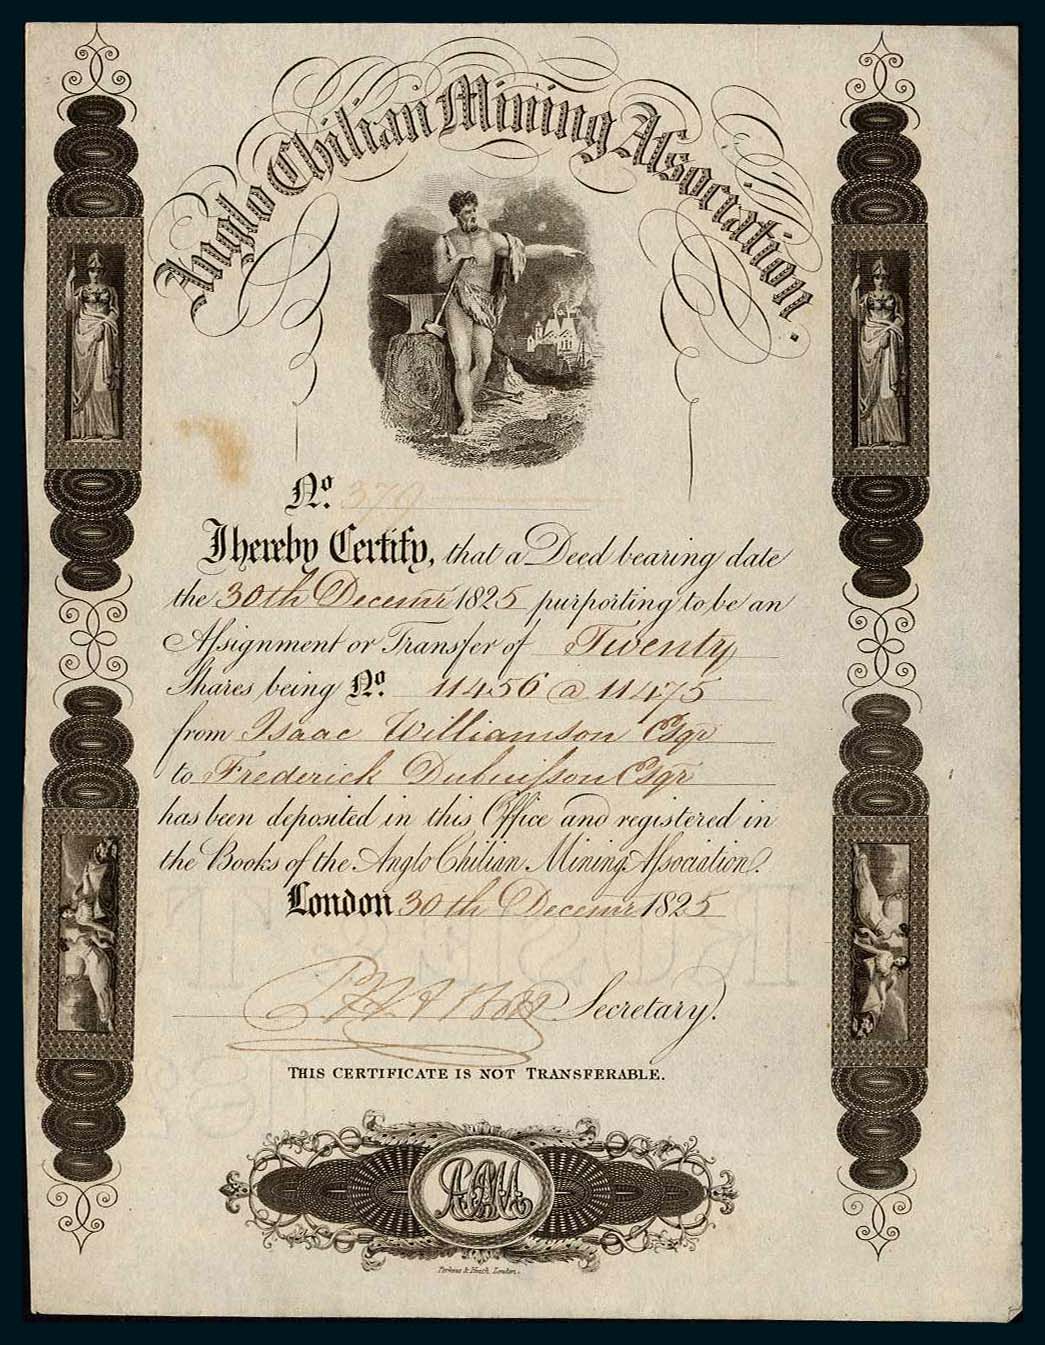 Anglo Chilian Mining Association.
No. 379
I hereby Certify, that a Deed bearing date
the 30th Decemr 1825 purporting to be an
Assignment or Transfer of Twenty
Shares being No. 11456 @ 11475
from Isaac Williamson Esqr
to Frederick Dubuisson Esqr
has been deposited in this Office and registered in
the Books of the Anglo Chilian Mining Association.
London 30th Decemr 1825
Secretary.
THIS CERTIFICATE IS NOT TRANSFERABLE.
ACMA
Perkins & Heath, London.